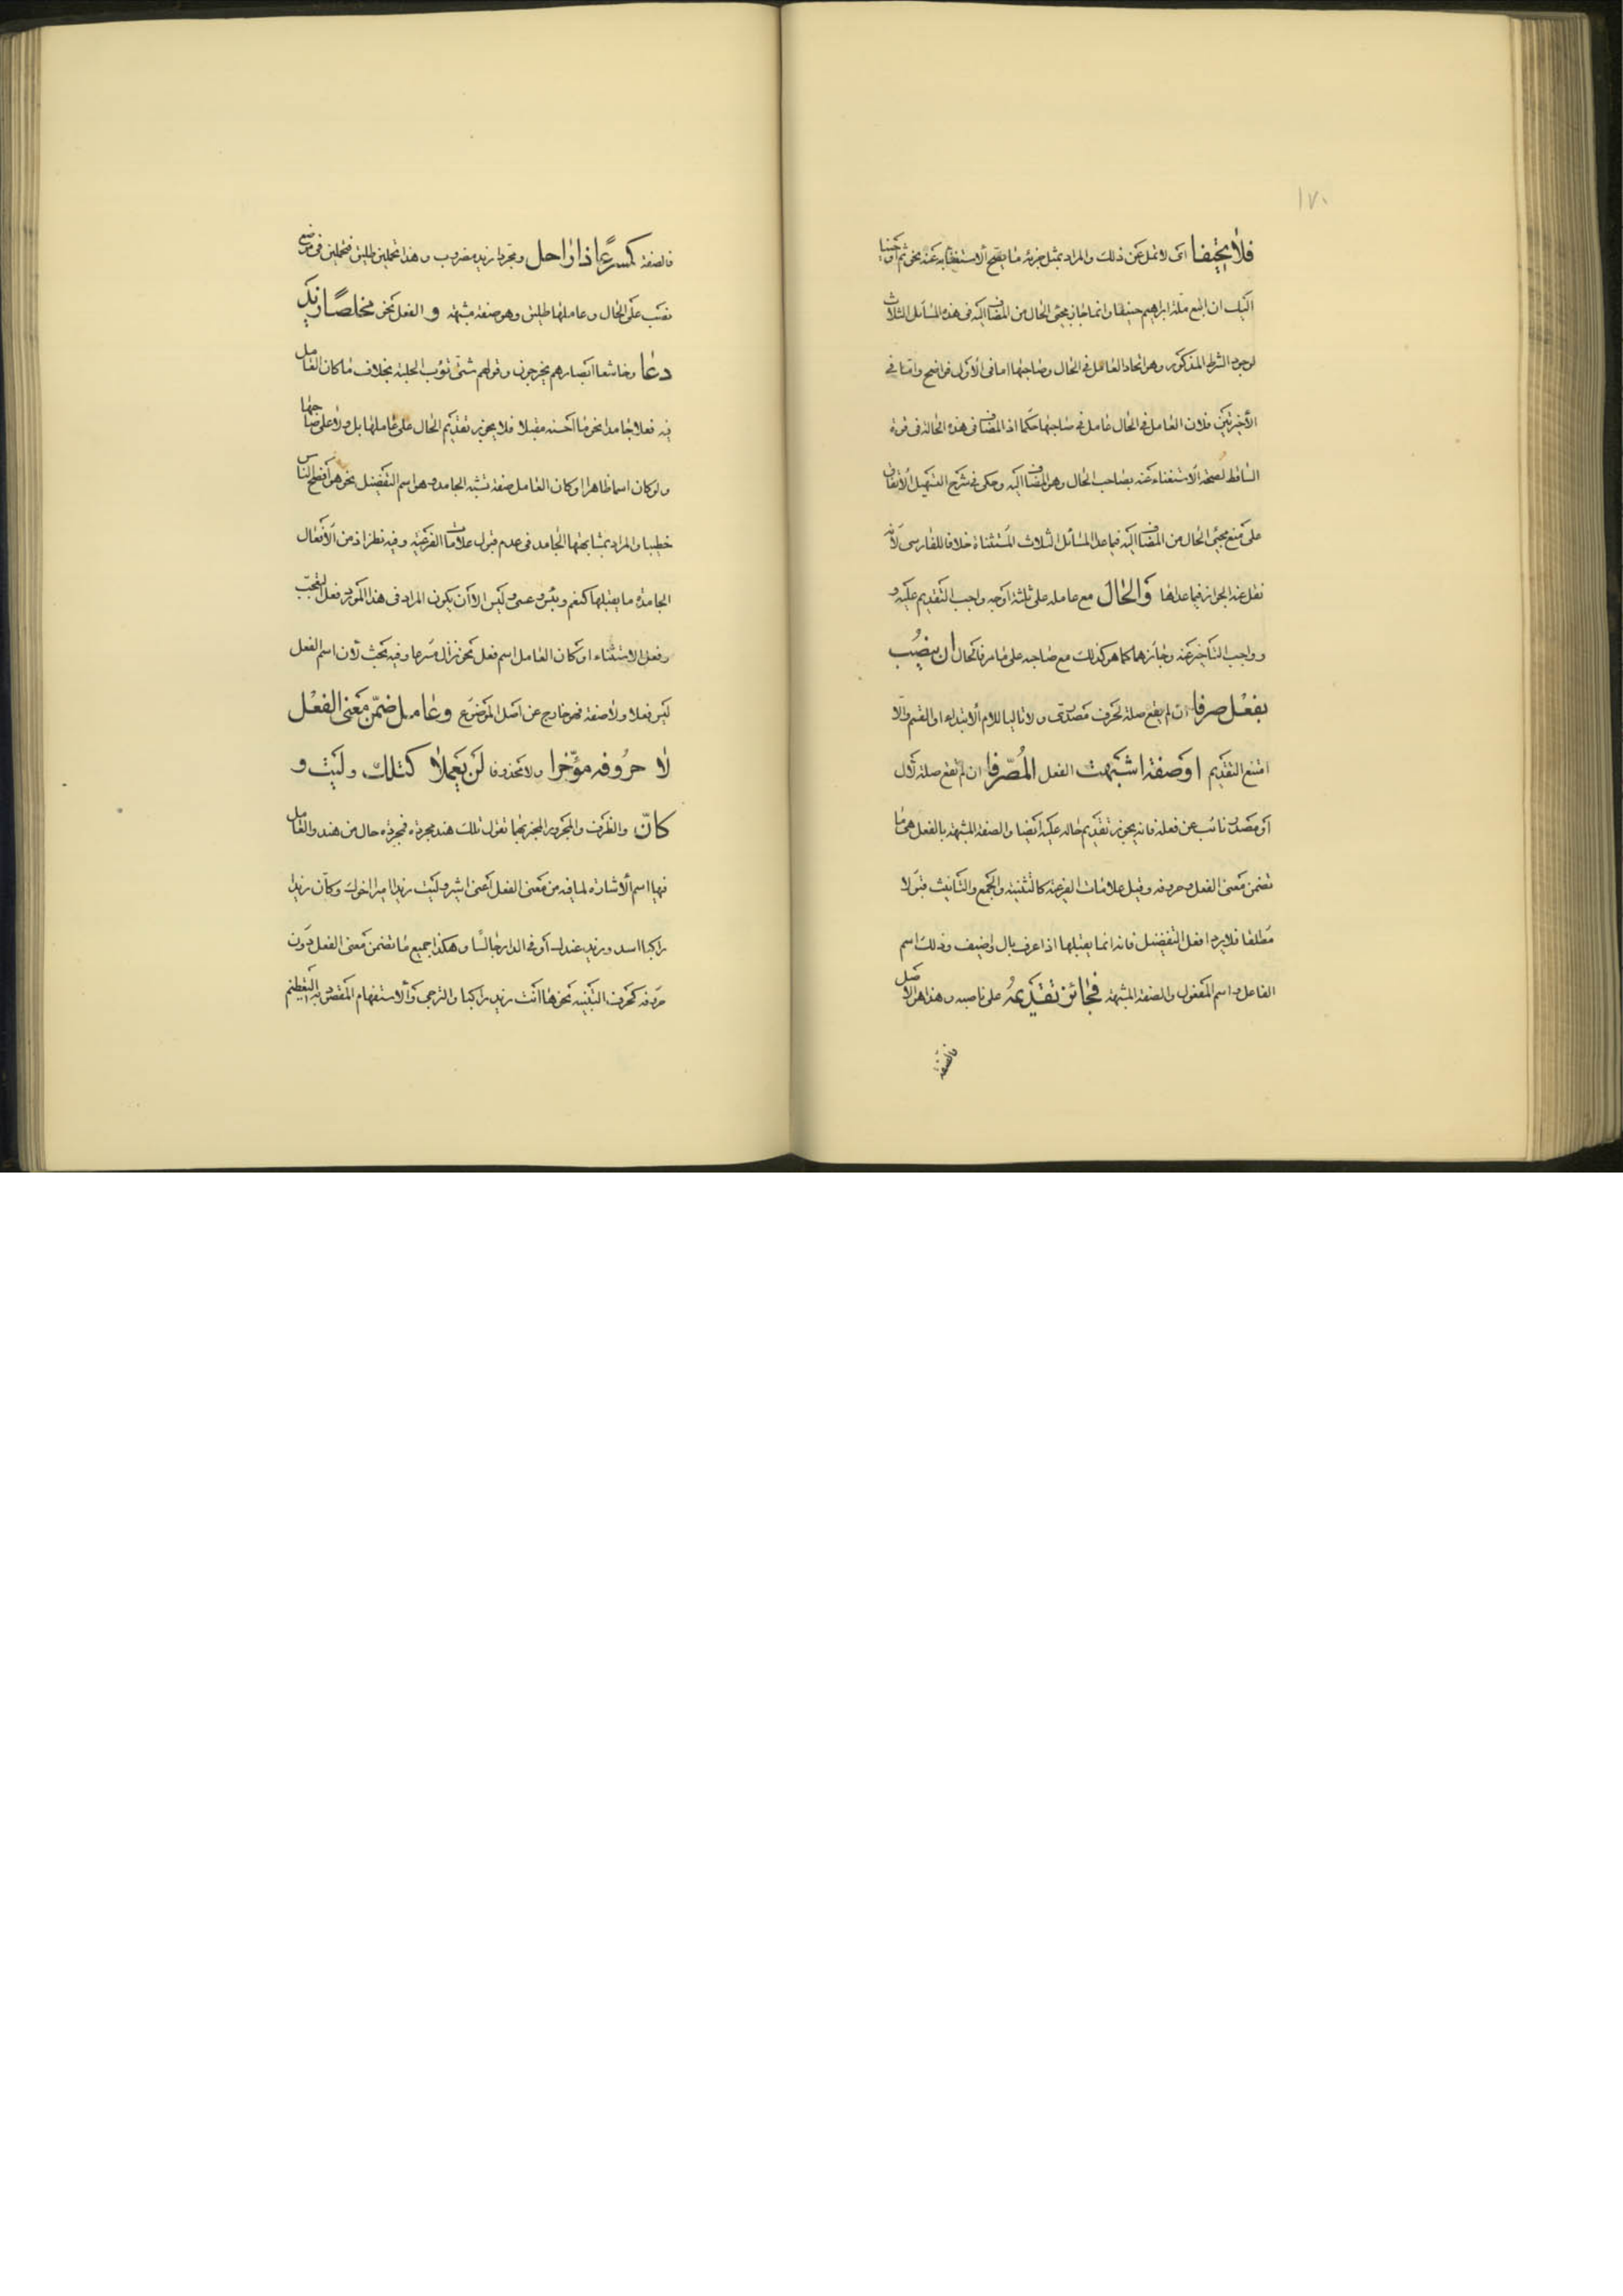 ١٧٠
فلا تحيفا اى لا تمل عن ذلك والمراد بمثل جزئه ما يصح الاستغناء به عنه نحو ثم اوحينا
اليك ان اتبع ملة ابراهيم حنيفا وانما جاز مجئ الحال من المضاف اليه فى هذه المسائل الثلاث
لوجود الشرط المذكور وهو اتحاد العامل فى الحال وصاحبها اما فى الاول فواضح واما فى
الأخيرتين فلان العامل فى الحال عامل فى صاحبها حكما اذ المضاف فى هذه الحالة فى قوة
الساقط لصحة الاستغناء عنه بصاحب الحال وهو المضاف اليه وحكى فى شرح التسهيل الاتفاق
على منع مجئ الحال من المضاف اليه فيما عدا المسائل الثلاث المستثناة خلافا للفارسى لانه
نقل عنه الجواز فيما عداها والحال مع عامله على ثلثة اوجه واجب التقديم عليه و
وواجب التاخير عنه وجائزهما كما هو كذلك مع صاحبه على ما مر فالحال ان ينصب
بفعل صرفا ان لم يقع صلة لحرف مصدرى ولا تاليا للام الابتداء او القسم والا
امتنع التقديم او صفة اشبهت الفعل المصرفا ان لم تقع صلة لال
او مصدر نائب عن فعله فانه يجوز تقديم حاله عليه ايضا والصفة المشبهة بالفعل هى ما
تضمن معنى الفعل وحروفه وقبل علامات الفرعية كالتثنية والجمع والتانيث قبولا
مطلقا فلا يرد افعل التفضيل فانه انما يقبلها اذا عرف بال او اضيف وذلك اسم
الفاعل واسم المفعول والصفة المشبهة فجائز تقديمه على ناصبه وهذا هو الاصل
فالصفة
فالصفة كمسرعا ذا راحل ومجردا زيد مضروب وهذا تحملين طليق فتحملين فى موضع
نصب على الحال وعاملها طليق وهو صفة مشبهة و الفعل نحو مخلصا زيد
دعا وخاشعا ابصارهم يخرجون وقولهم شتى تؤب الحلبة بخلاف ما كان العامل
فيه فعلا جامدا نحو ما احسنه مقبلا فلا يجوز تقديم الحال على عاملها بل ولا على صاحبها
ولو كان اسما ظاهرا او كان العامل صفة تشبه الجامد وهو اسم التفضيل نحو هو افصح الناس
خطيبا والمراد بمشابهتها الجامد فى عدم قبول علامات الفرعية وفيه نظر اذ من الافعال
الجامدة ما يقبلها كنعم وبئس وعسى وليس الا ان يكون المراد فى هذا المورد فعل التعجب
وفعل الاستثناء او كان العامل اسم فعل نحو نزال مسرعا وفيه بحث لان اسم الفعل
ليس فعلا ولا صفة فهو خارج عن اصل الموضوع وعامل ضمن معنى الفعل
لا حروفه مؤخرا ولا محذوفا لن يعملا كتلك وليت و
كان والظرف والمجرور المخبر بهما تقول تلك هند مجردة فمجردة حال من هند والعامل
فيها اسم الاشارة لما فيه من معنى الفعل اعنى اشير وليت زيدا اميرا اخوك وكان زيدا
راكبا اسد وزيد عندك او فى الدار جالسا وهكذا جميع ما تضمن معنى الفعل دون
حروفه كحرف التنبيه نحو ها انت زيد راكبا والترجى والاستفهام المقصود به التعظيم